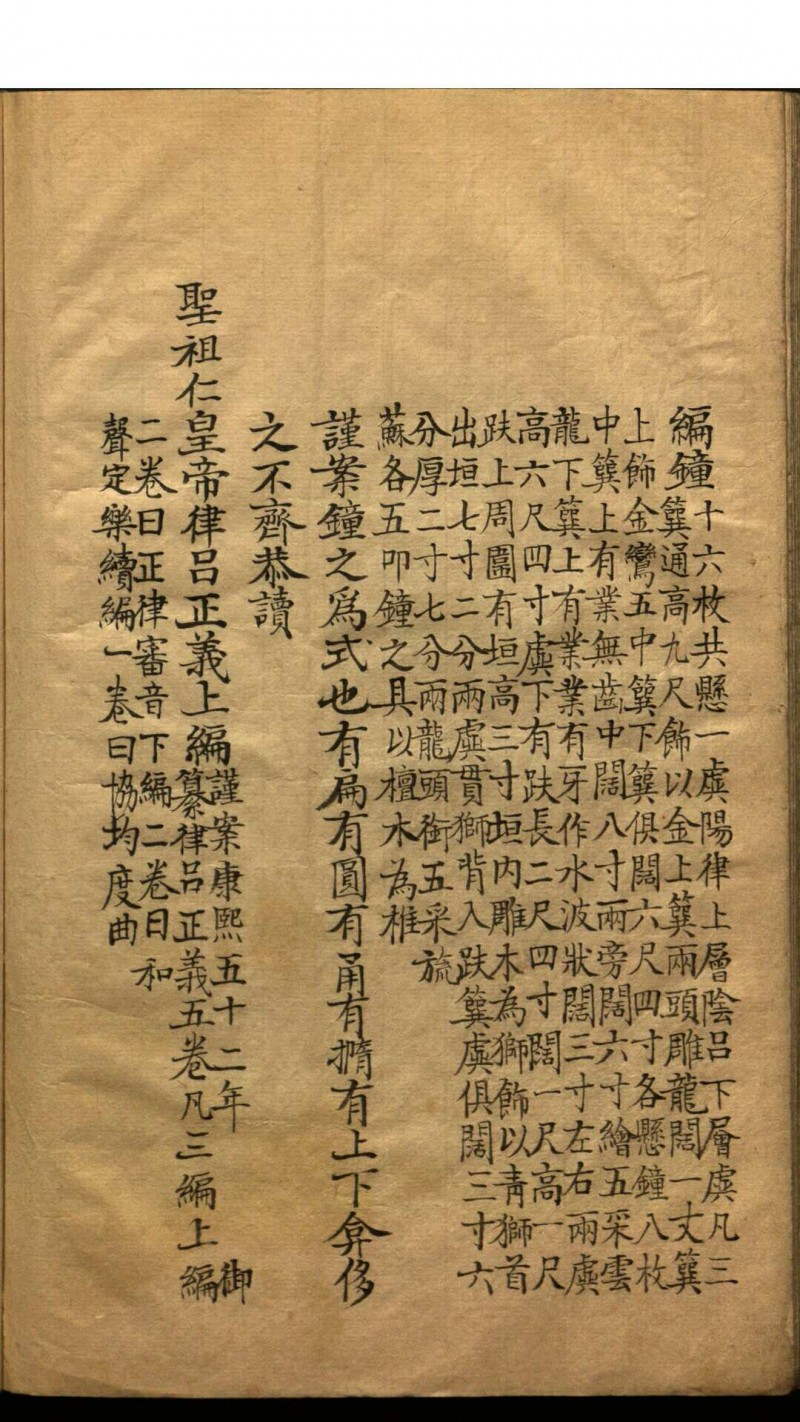 編鐘十六枚共懸一虡陽律上層陰呂下層虡凡三
簨通高九尺飾以金上簨兩頭雕龍闊一丈簨
上飾金鸞五中簨下簨俱闊六尺四寸各懸鐘八枚
中簨上有業無齒中闊八寸兩旁闊六寸繪五采雲
龍下簨上有業業有牙作水波狀闊三寸左右兩虡
高六尺四寸虡下有趺長二尺四寸闊一尺高一尺
趺上周圍有垣高三寸垣內雕木為獅飾以青獅首
出垣七寸二分兩虡貫獅背入趺簨虡俱闊三寸六
分厚二寸七分兩龍頭銜五采旒
蘇各五叩鐘之具以檀木為椎
謹案鐘之爲式也有扁有圓有甬有撱有上下弇侈
之不齊恭讀
聖祖仁皇帝律呂正義上編謹案康熙五十二年 御
纂律呂正義五卷凡三編上編
二卷曰正律審音下編二卷曰和
聲定樂續編一卷曰協均度曲